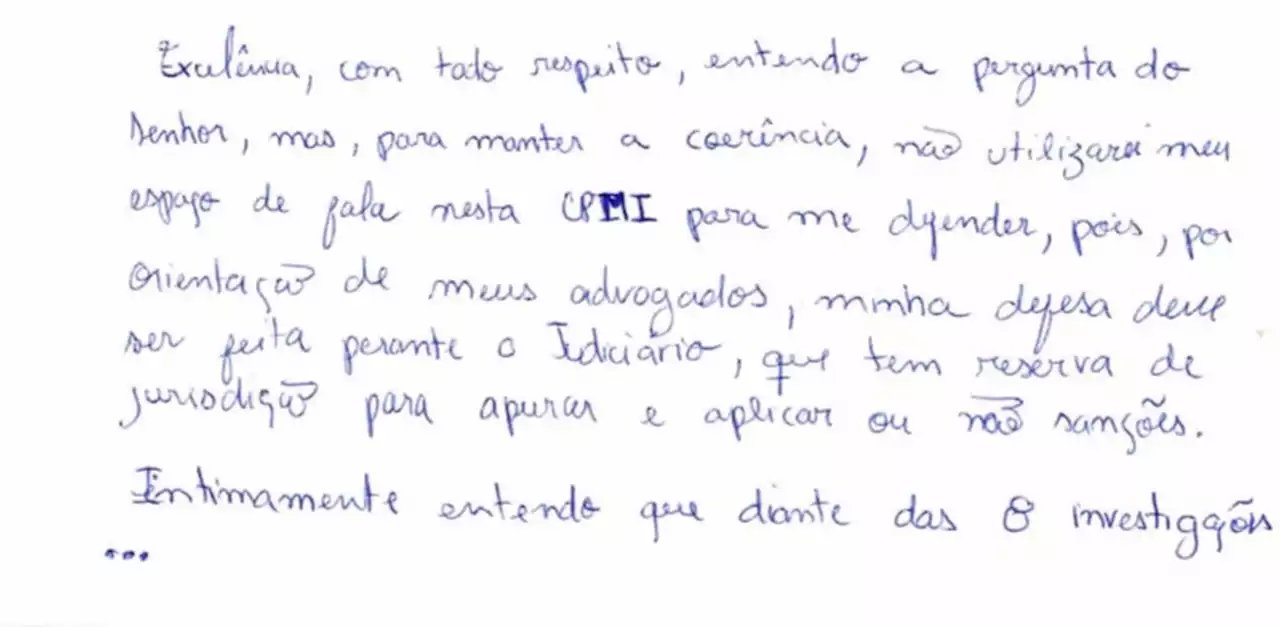 Excelência, com todo respeito, entendo a pergunta do
senhor, mas, para manter a coerência, não utilizarei meu
espaço de fala nesta CPMI para me defender, pois, por
orientação de meus advogados, minha defesa deve
ser feita perante o Judiciário, que tem reserva de
jurisdição para apurar e aplicar ou não sanções.
Intimamente entendo que diante das 8 investigações
...